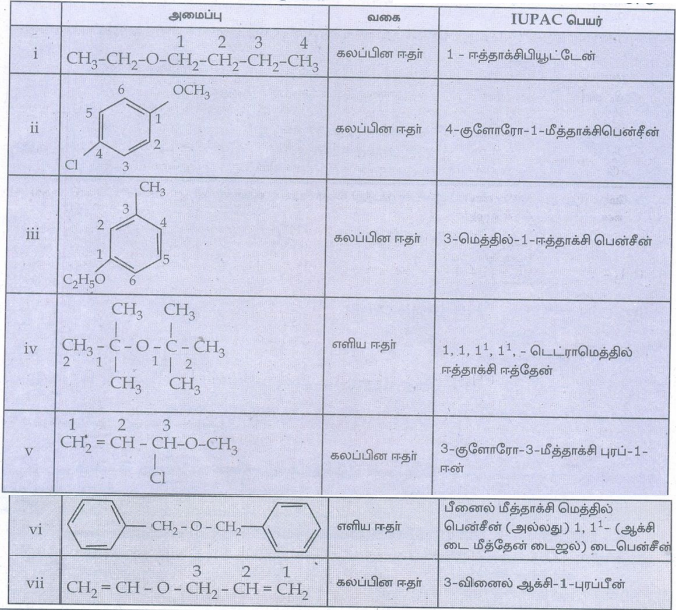 அமைப்பு வகை IUPAC பெயர்
i
1 2 3 4
CH₃–CH₂–O–CH₂–CH₂–CH₂–CH₃
கலப்பின ஈதர்
1 - ஈத்தாக்சிபியூட்டேன்
ii
6 OCH₃
5 1
4 2
Cl 3
கலப்பின ஈதர்
4-குளோரோ-1-மீத்தாக்சிபென்சீன்
iii
CH₃
3
2 4
1 5
C₂H₅O 6
கலப்பின ஈதர்
3-மெத்தில்-1-ஈத்தாக்சி பென்சீன்
iv
CH₃ CH₃
CH₃ – C – O – C – CH₃
2 1 1 2
CH₃ CH₃
எளிய ஈதர்
1, 1, 1¹, 1¹, - டெட்ராமெத்தில்
ஈத்தாக்சி ஈத்தேன்
v
1 2 3
CH₂ = CH – CH–O–CH₃
Cl
கலப்பின ஈதர்
3-குளோரோ-3-மீத்தாக்சி புரப்-1-
ஈன்
vi
CH₂ – O – CH₂
எளிய ஈதர்
பீனைல் மீத்தாக்சி மெத்தில்
பென்சீன் (அல்லது) 1, 1¹- (ஆக்சி
டை மீத்தேன் டைஜல்) டைபென்சீன்
vii
3 2 1
CH₂ = CH – O – CH₂ – CH = CH₂
கலப்பின ஈதர்
3-வினைல் ஆக்சி-1-புரப்பீன்